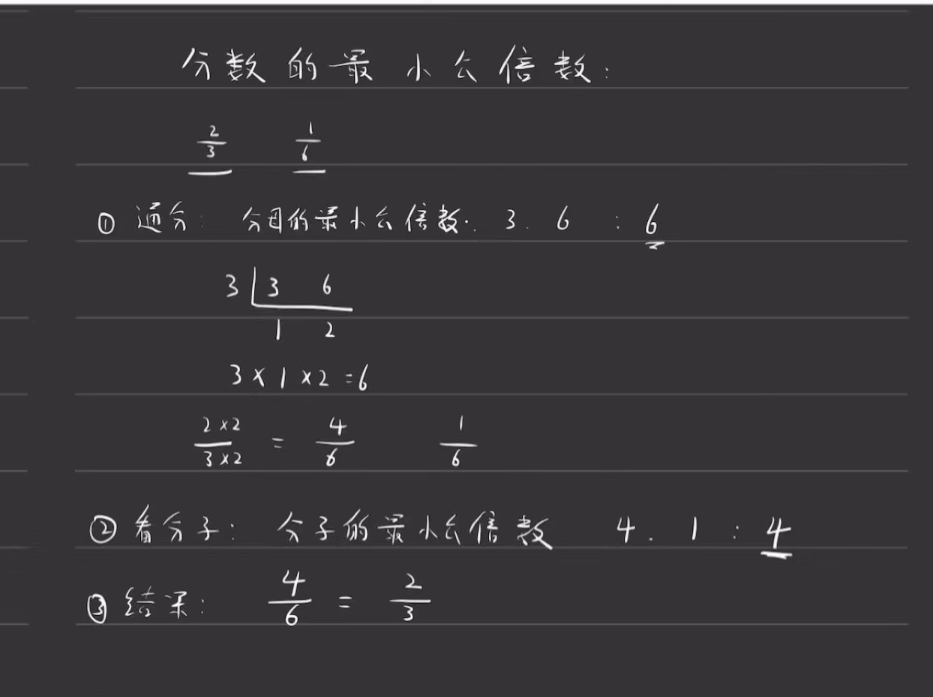 分数的最小公倍数:
2/3 1/6
① 通分: 分母的最小公倍数. 3. 6 : 6
3 3 6
1 2
3 × 1 × 2 = 6
2×2/3×2 = 4/6 1/6
② 看分子: 分子的最小公倍数 4. 1 : 4
③ 结果: 4/6 = 2/3